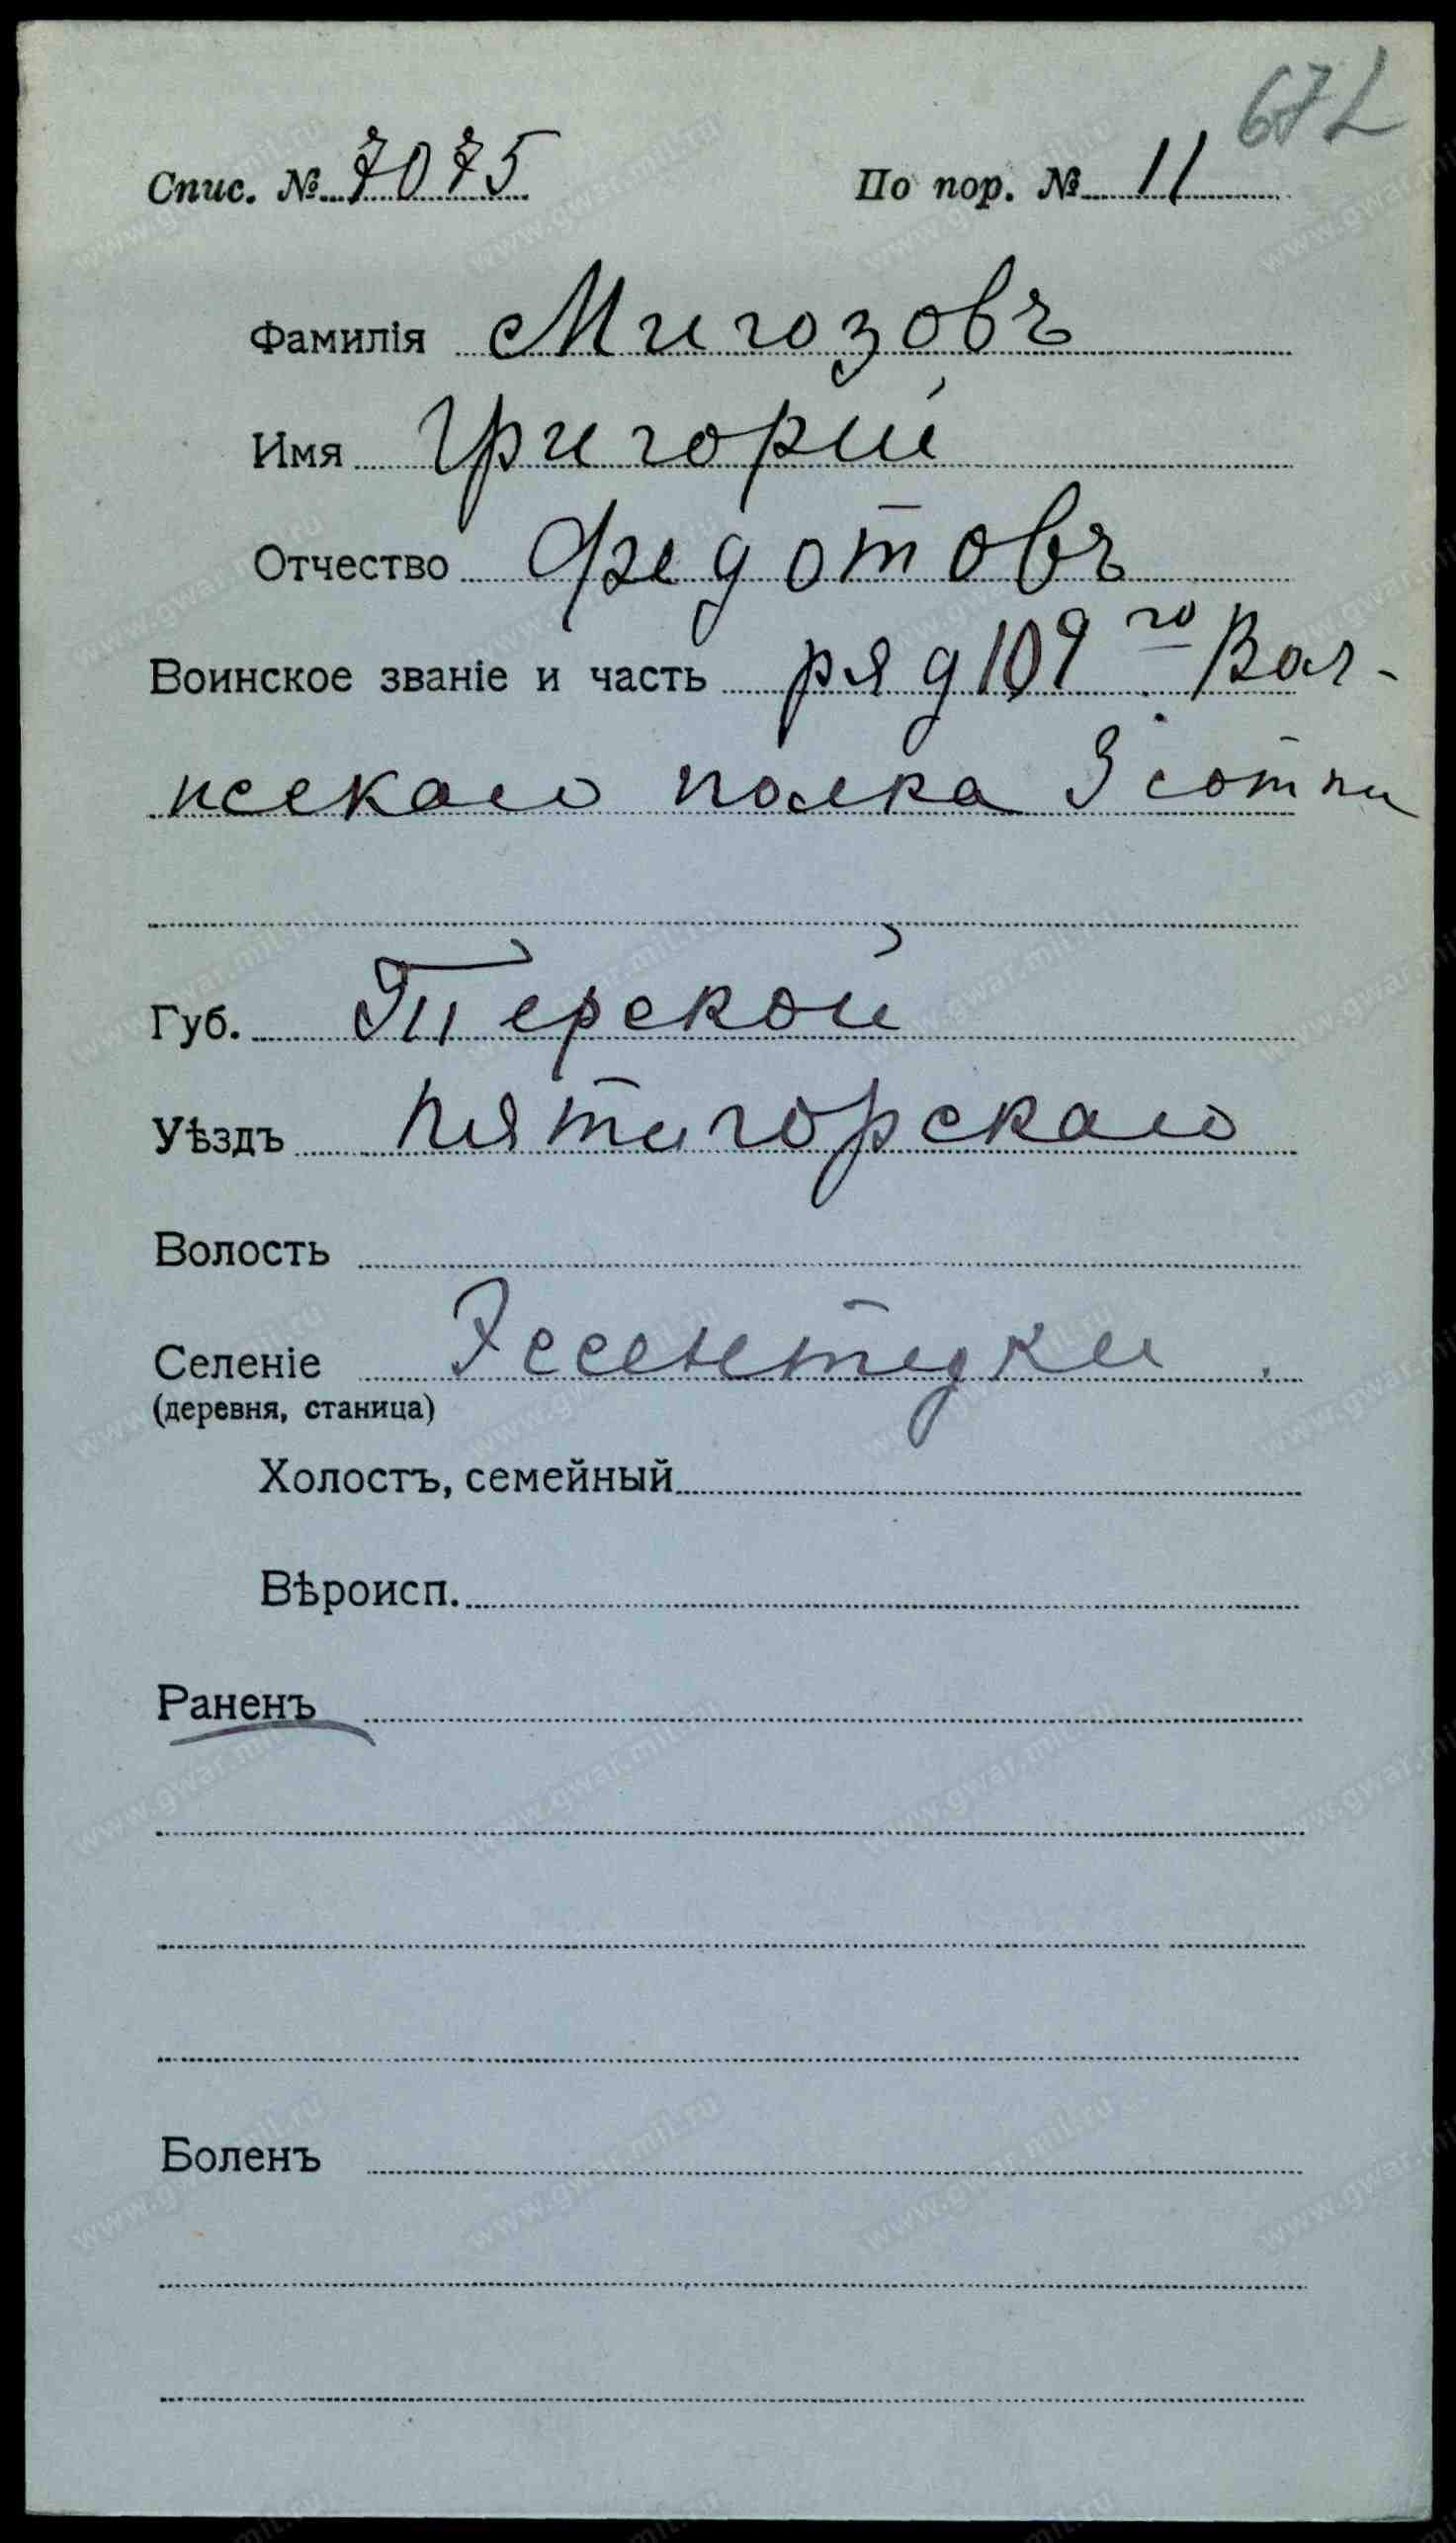 67 L
Спис. № 7075 По пор. № 11
Фамилія Мигозовъ
Имя Григорий
Отчество Федотовъ
Воинское званіе и часть ряд 109го Вол-
нскаго полка 3 сотни
Губ. Терской
Уѣздъ Пятигорскаго
Волость
Селеніе Эссентуки.
(деревня, станица)
Холостъ, семейный
Вѣроисп.
Раненъ
Боленъ